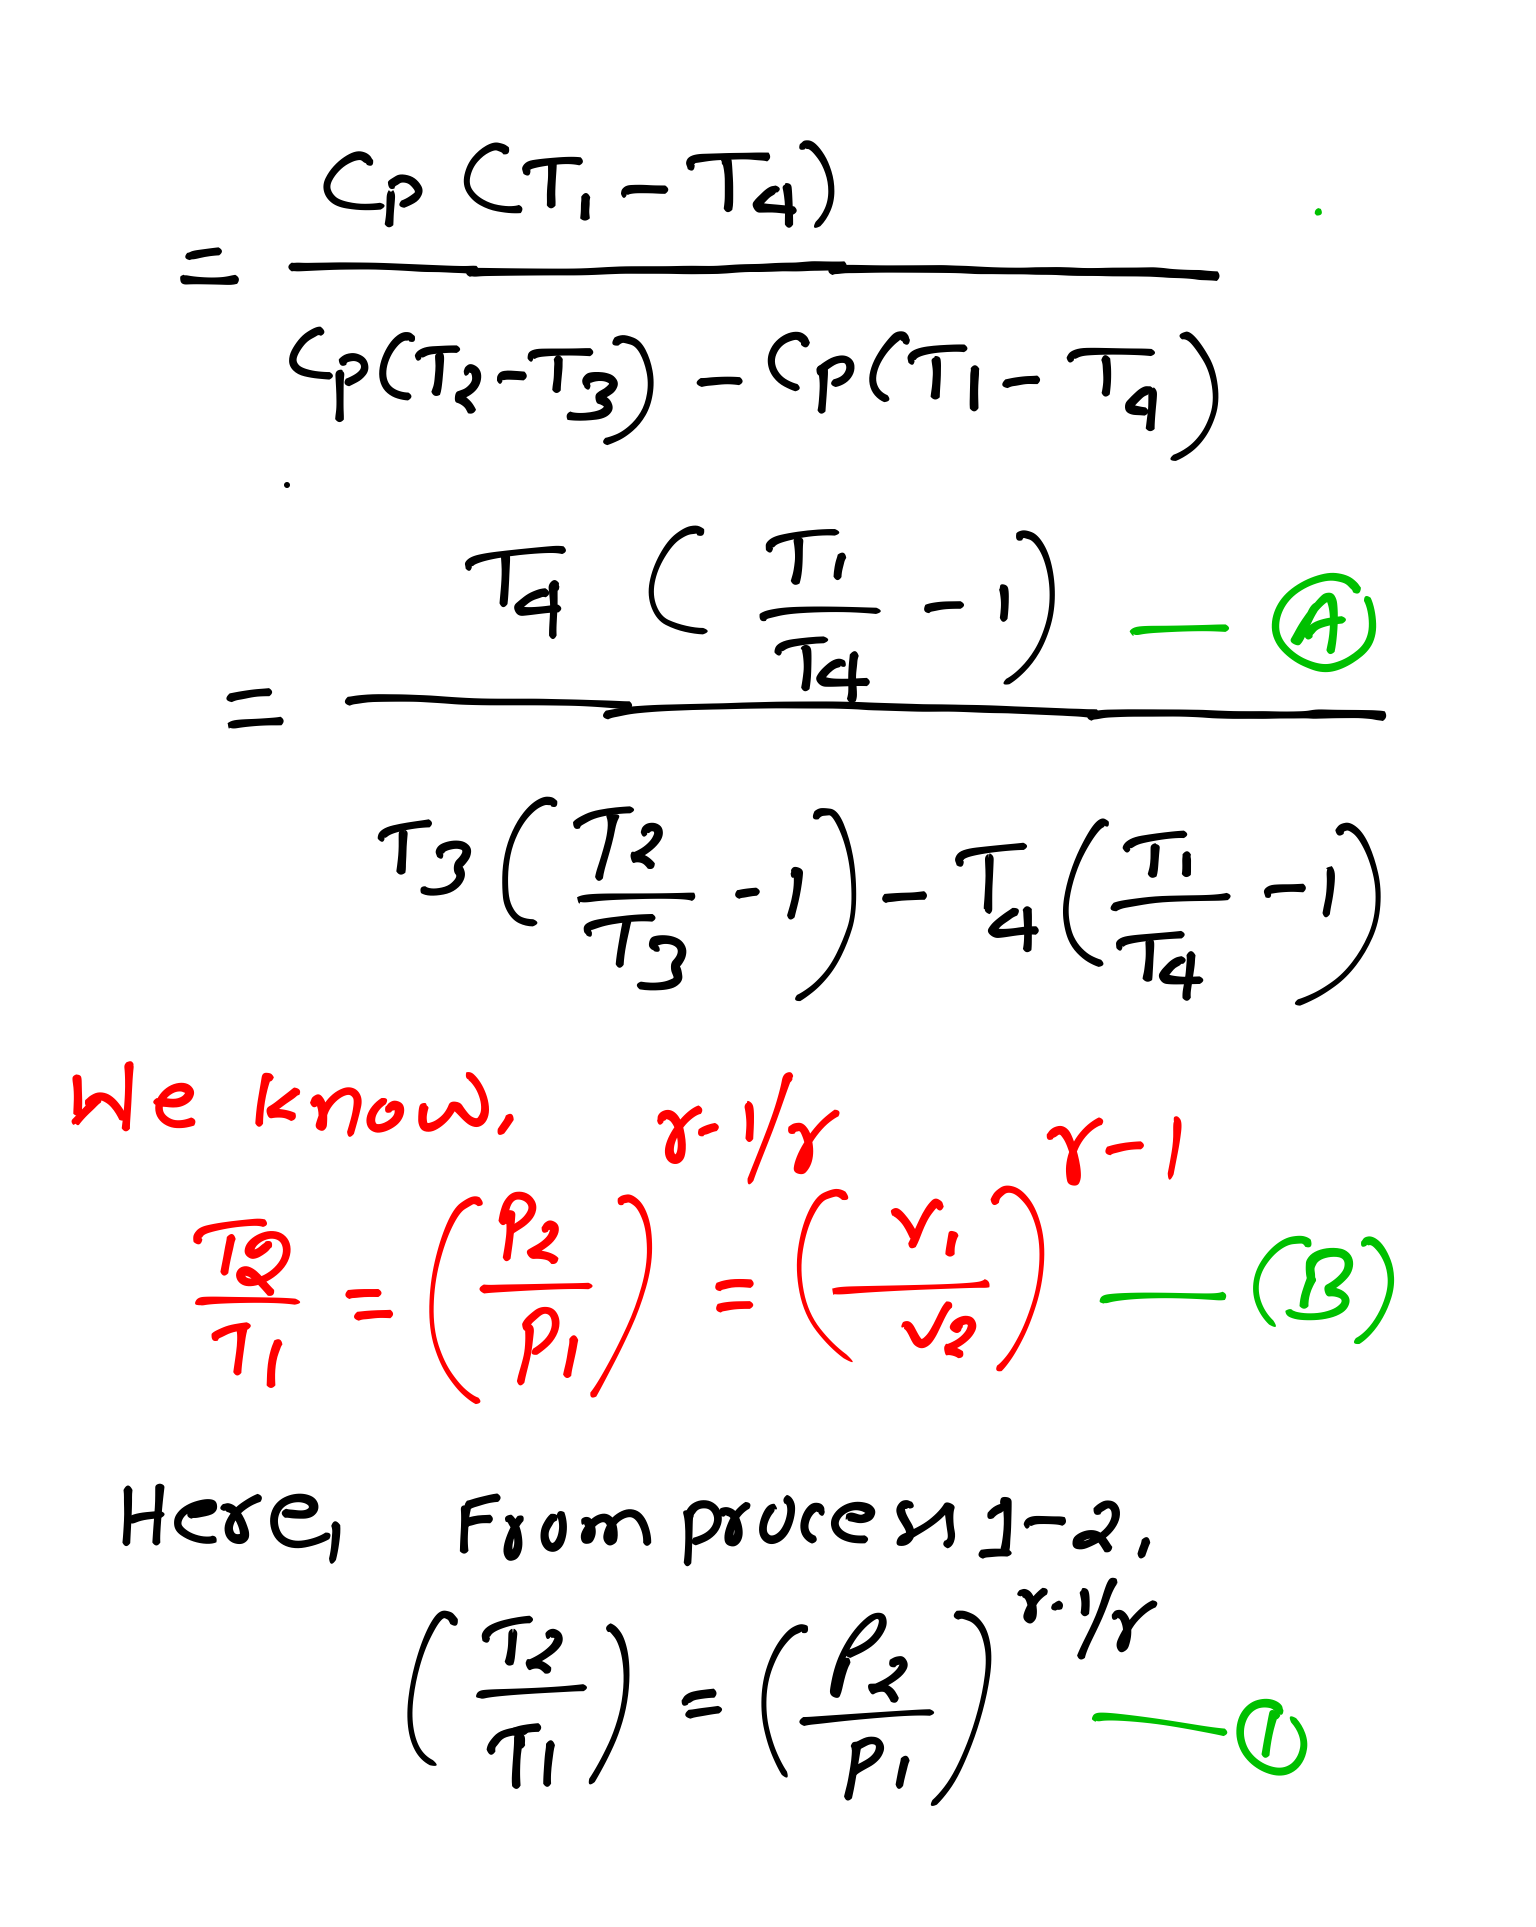 = Cp (T₁ − T₄) / Cp(T₂ − T₃) − Cp(T₁ − T₄)
= T₄ (T₁/T₄ − 1) / T₃(T₂/T₃ − 1) − T₄(T₁/T₄ − 1) — (A)
We know,
T₂/T₁ = (P₂/P₁)^(γ-1/γ) = (V₁/V₂)^(γ-1) — (B)
Here, From process 1-2,
(T₂/T₁) = (P₂/P₁)^(γ-1/γ) — (1)